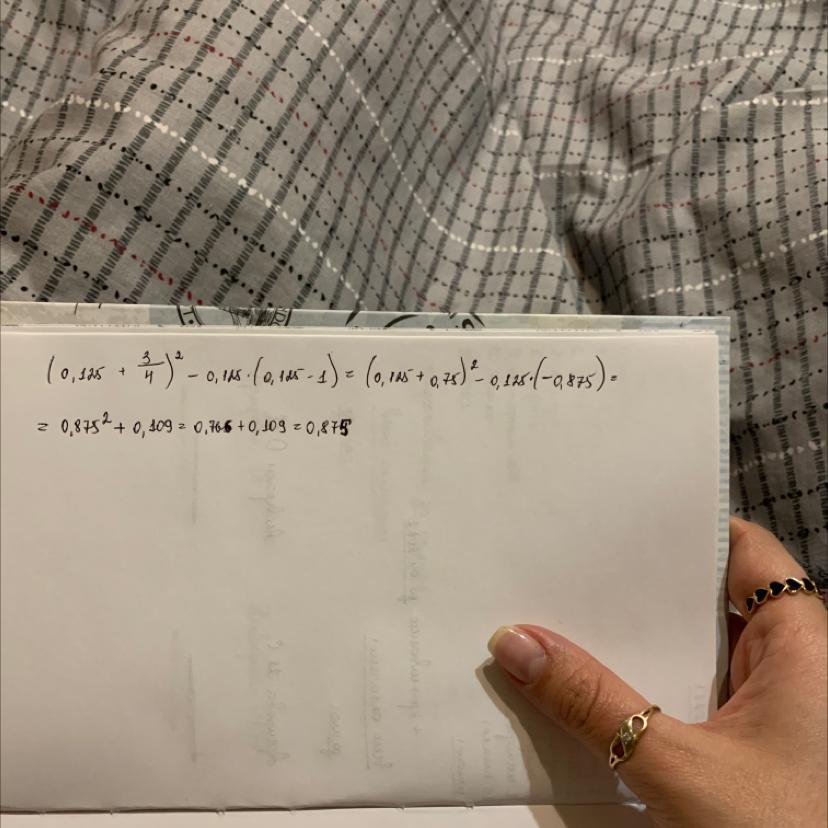 (0,125 + 3/4)² - 0,125·(0,125 - 1) = (0,125 + 0,75)² - 0,125·(-0,875) =
= 0,875² + 0,109 = 0,766 + 0,109 = 0,875